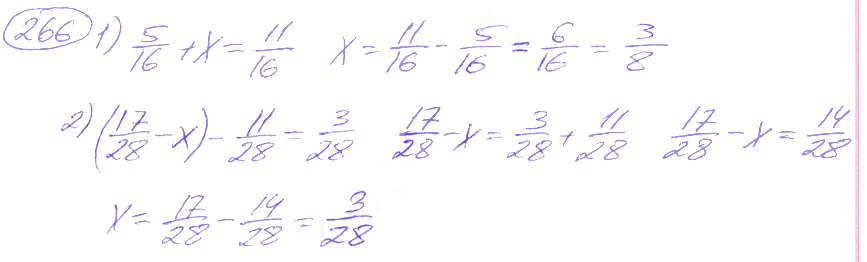 266 1) 5/16 + x = 11/16 x = 11/16 - 5/16 = 6/16 = 3/8
2) (17/28 - x) - 11/28 = 3/28 17/28 - x = 3/28 + 11/28 17/28 - x = 14/28
x = 17/28 - 14/28 = 3/28